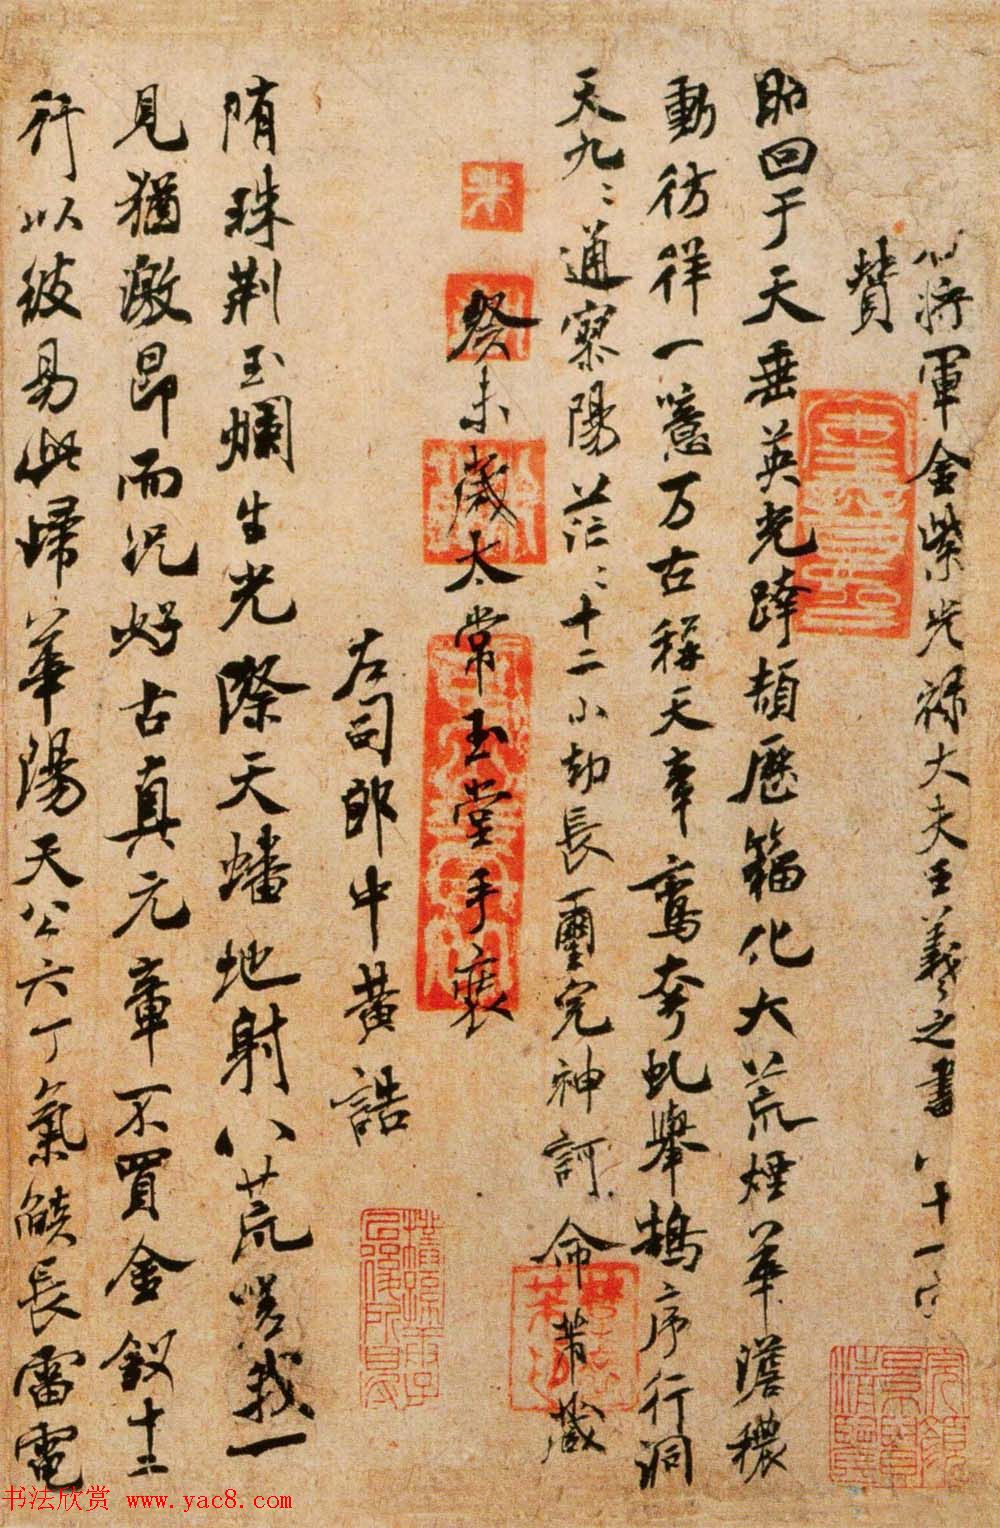 右將軍金紫光祿大夫王羲之書八十一字
贊
昭回于天垂英光跨頡歷籀化大荒煙華澹穠
動彷徉一噫万古稱天章鸞夸虬舉鵠序行洞
天九〻通寥陽茫〻十二小劫長璽完神訶命芾藏
癸未歲太常玉堂手裝
左司郎中黃誥
隋珠荆玉爛生光際天蟠地射八荒嗟我一
見猶激昂而況好古真元章不買金釵十二
行以彼易此歸華陽天公六丁氣燄長雷電
书法欣赏 www.yac8.com